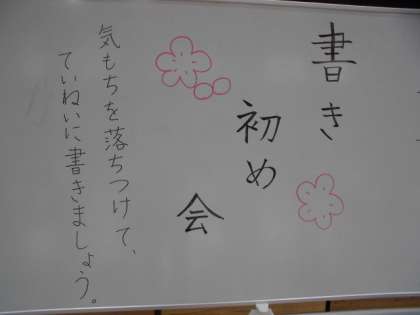 書き
初め
会
気もちを落ちつけて、
ていねいに書きましょう。